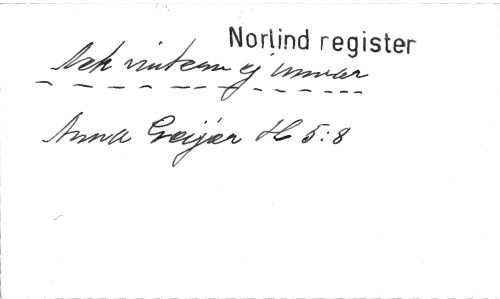 Norlind register
Ack vintern ej
Anna Geijer H 5:8